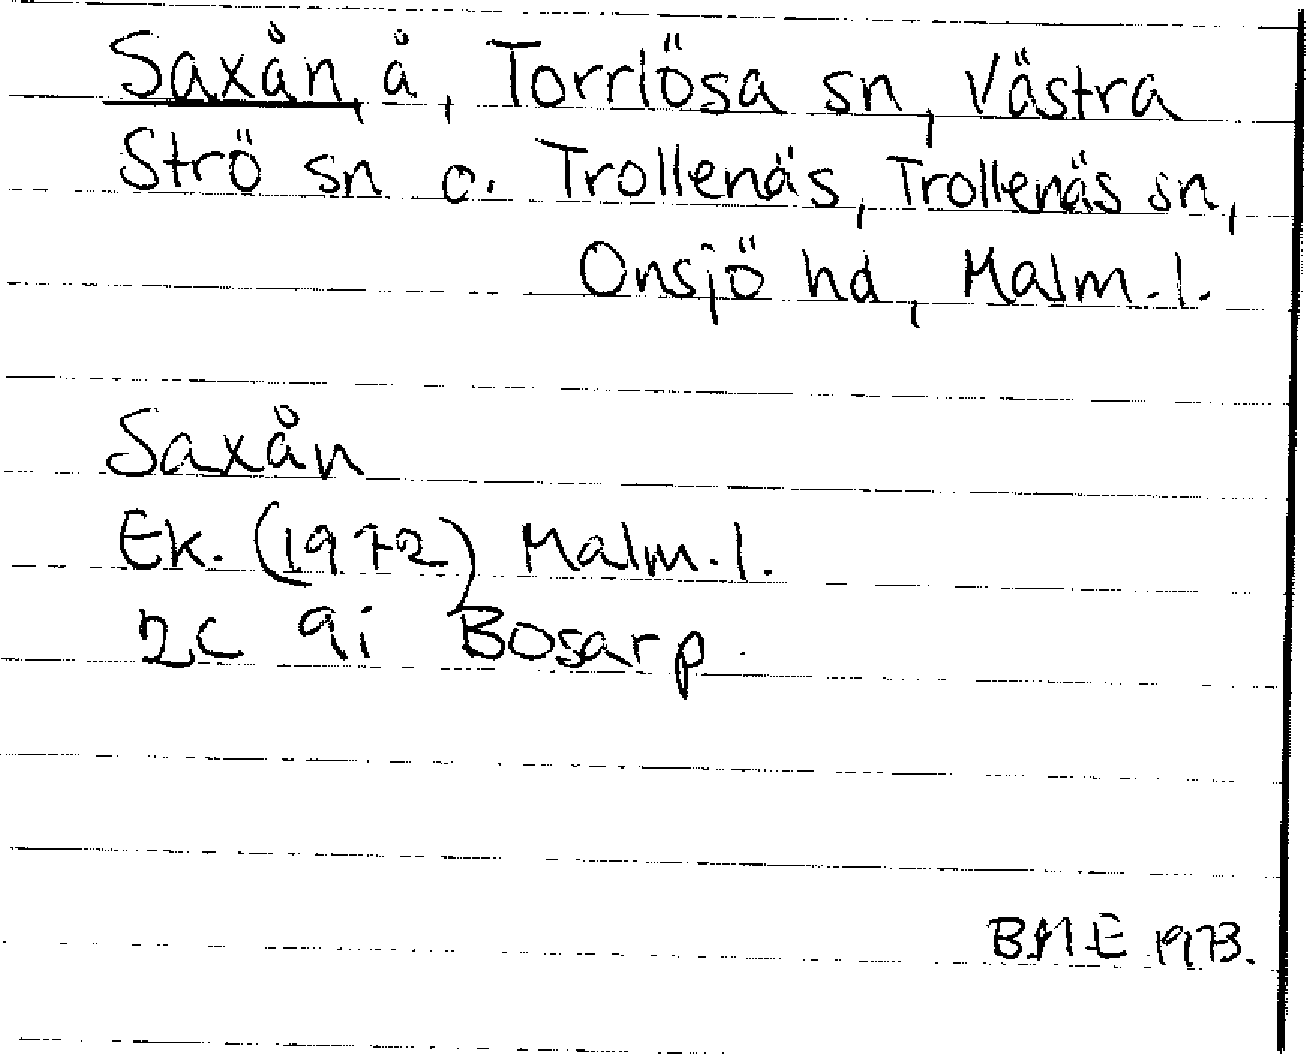 Saxån, å, Torrlösa sn, Västra
Strö sn o. Trollenäs, Trollenäs sn,
Onsjö hd, Malm.l.
Saxån
Ek. (1972) Malm.l.
2C 9i Bosarp.
BME 1973.